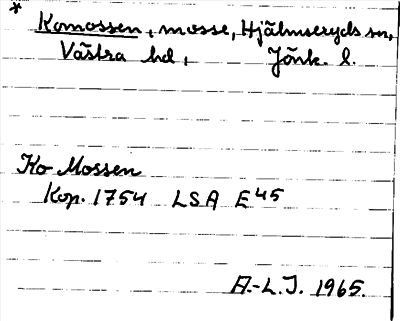 *
Komossen, mosse, Hjälmseryds sn,
Västra hd, Jönk. l.
Ko Mossen
Kop. 1754 LSA E45
A.-L.J. 1965.